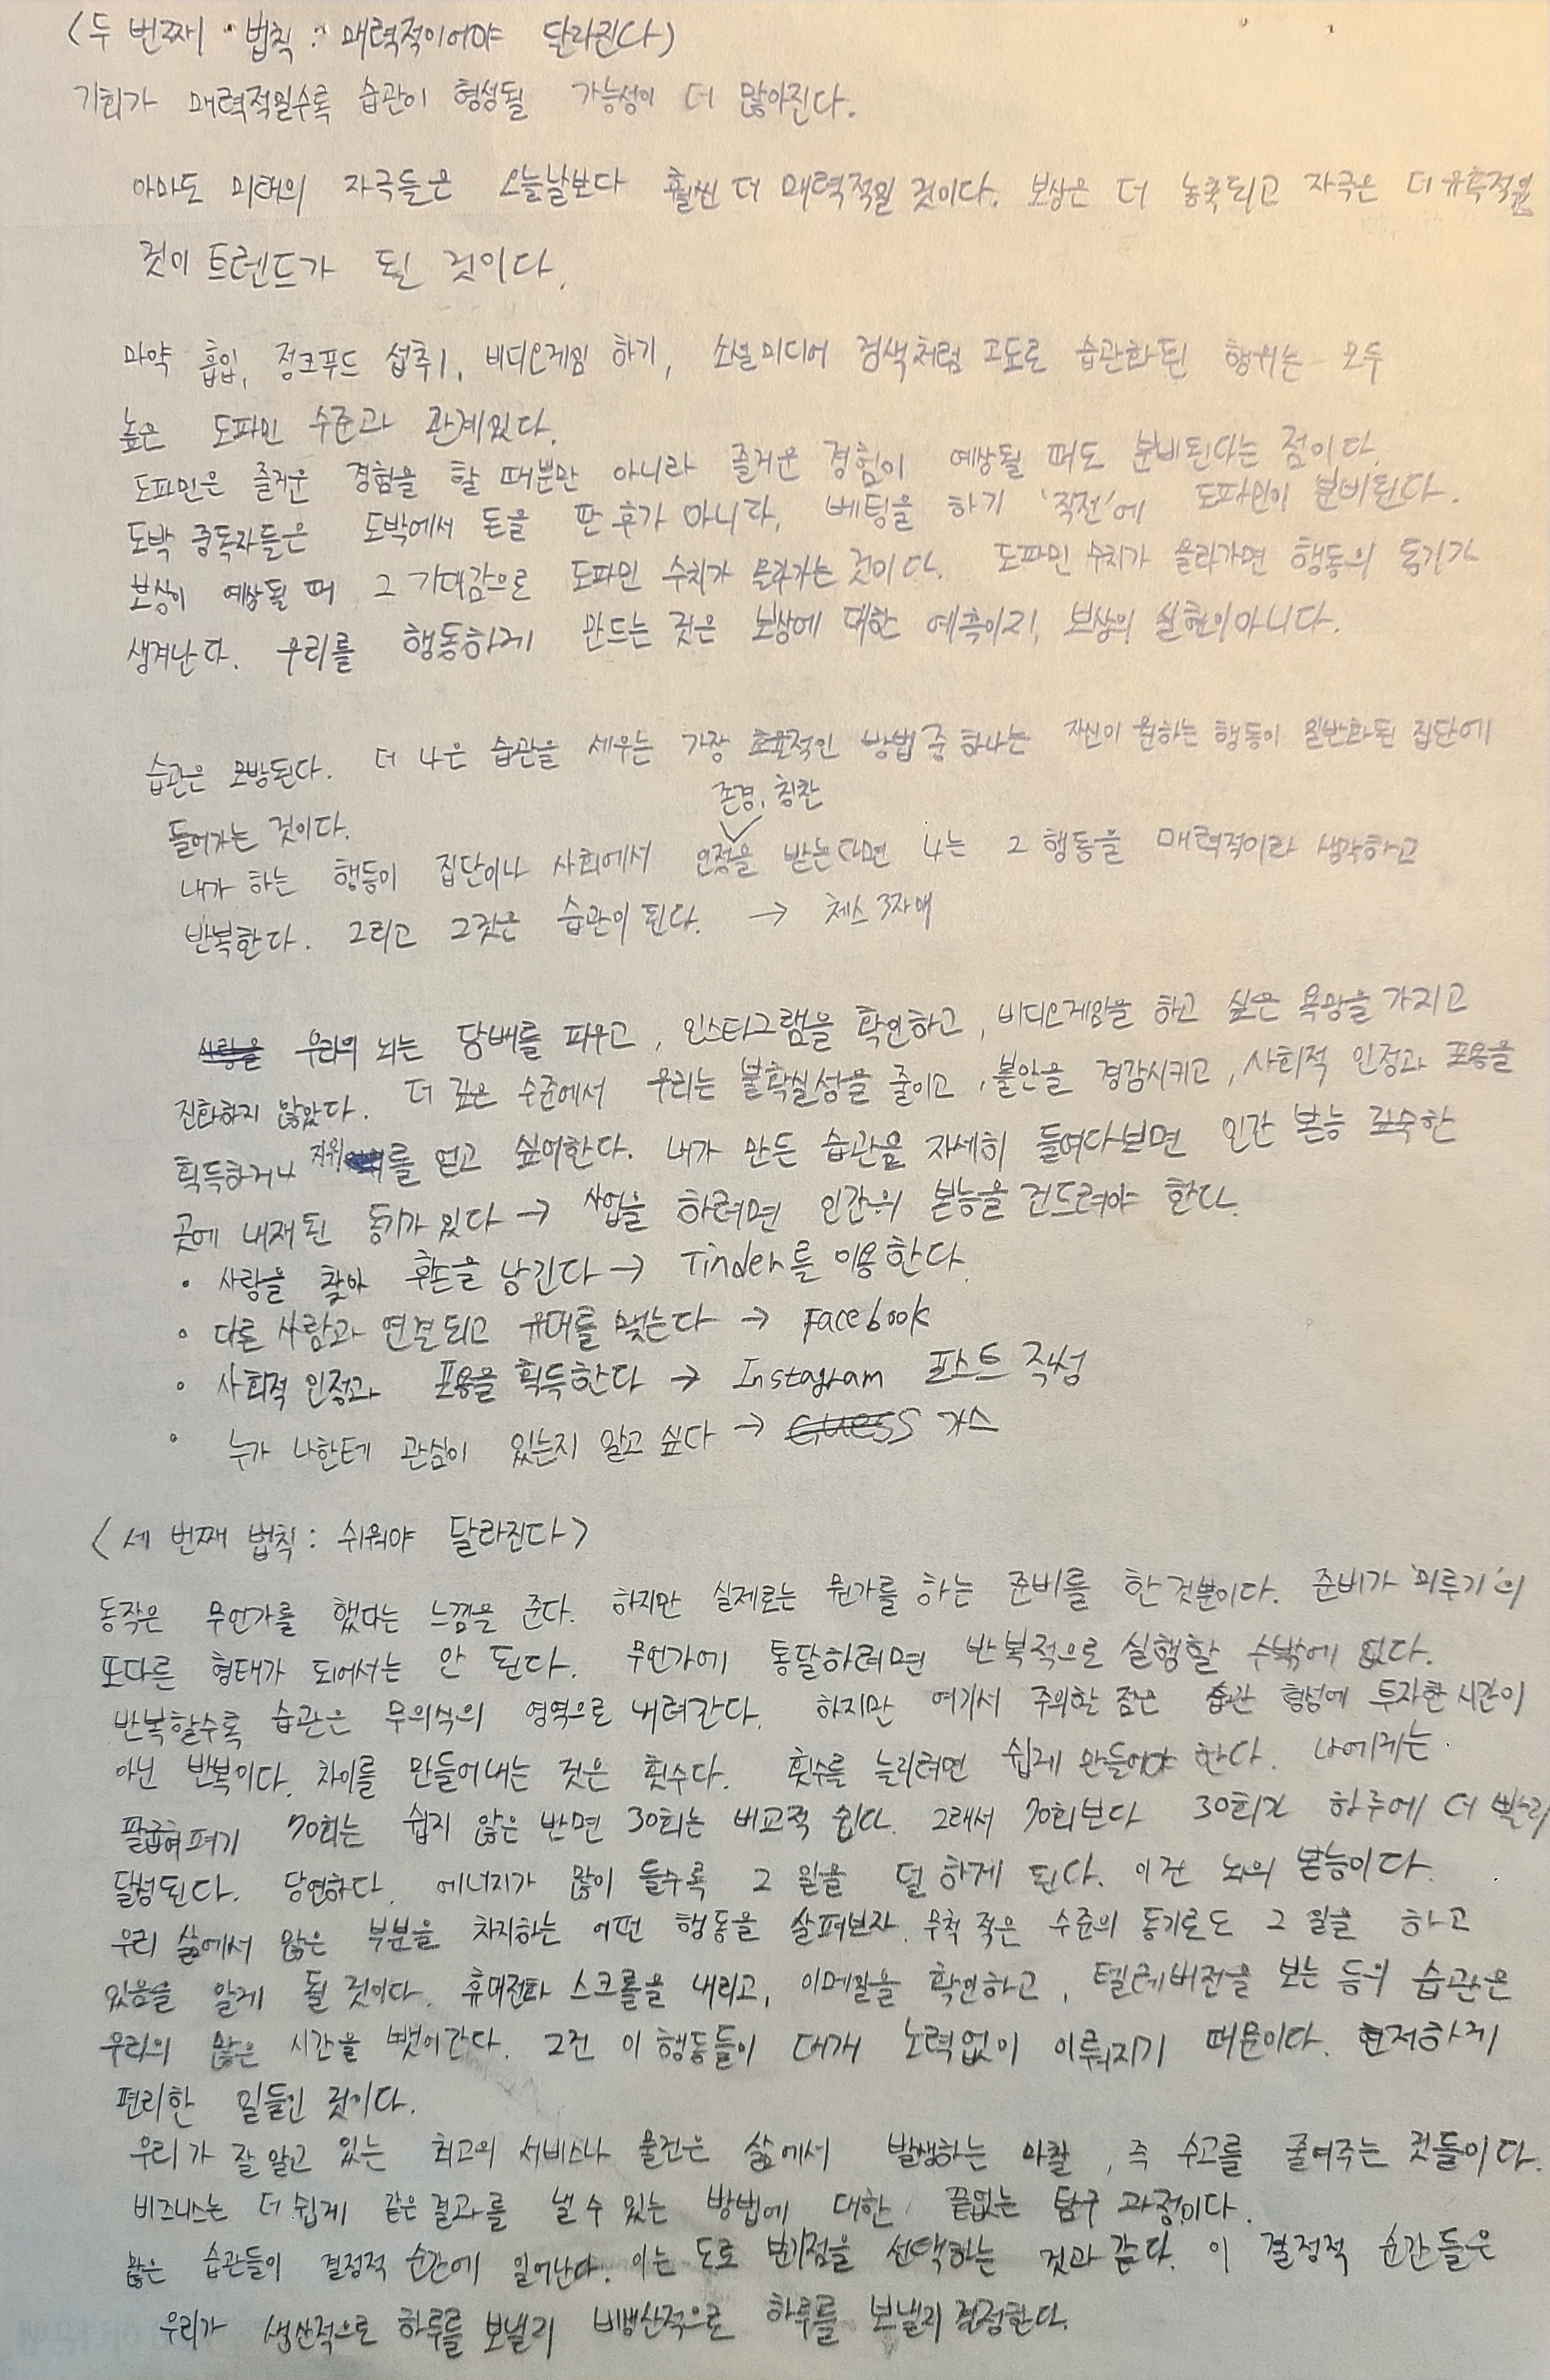 <두 번째 법칙 : 매력적이어야 달라진다>
기회가 매력적일수록 습관이 형성될 가능성이 더 많아진다.
아마도 미래의 자극들은 오늘날보다 훨씬 더 매력적일 것이다. 보상은 더 농축되고 자극은 더 유혹적일
것이 트렌드가 될 것이다.
마약 흡입, 정크푸드 섭취, 비디오게임 하기, 소셜미디어 검색처럼 고도로 습관화된 행위는 모두
높은 도파민 수준과 관계있다.
도파민은 즐거운 경험을 할 때뿐만 아니라 즐거운 경험이 예상될 때도 분비된다는 점이다.
도박 중독자들은 도박에서 돈을 딴 후가 아니다, 베팅을 하기 '직전'에 도파민이 분비된다.
보상이 예상될 때 그 기대감으로 도파민 수치가 올라가는 것이다. 도파민 수치가 올라가면 행동의 동기가
생겨난다. 우리를 행동하게 만드는 것은 보상에 대한 예측이지, 보상의 실현이 아니다.
습관은 모방된다. 더 나은 습관을 세우는 가장 효율적인 방법 중 하나는 자신이 원하는 행동이 일반화된 집단에
들어가는 것이다.
존경, 칭찬
내가 하는 행동이 집단이나 사회에서 인정을 받는다면 나는 그 행동을 매력적이라 생각하고
반복한다. 그리고 그것은 습관이 된다. → 체스 3자매
우리의 뇌는 담배를 피우고, 인스타그램을 확인하고, 비디오게임을 하고 싶은 욕망을 가지고
진화하지 않았다. 더 깊은 수준에서 우리는 불확실성을 줄이고, 불안을 경감시키고, 사회적 인정과 포용을
획득하거나 지위를 얻고 싶어한다. 내가 만든 습관을 자세히 들여다보면 인간 본능 깊숙한
곳에 내재된 동기가 있다 → 사업을 하려면 인간의 본능을 건드려야 한다.
• 사랑을 찾아 후손을 남긴다 → Tinder를 이용한다.
• 다른 사람과 연결되고 유대를 맺는다 → Facebook
• 사회적 인정과 포용을 획득한다 → Instagram 포스트 작성
• 누가 나한테 관심이 있는지 알고 싶다 → Guess 가스
<세 번째 법칙 : 쉬워야 달라진다>
동작은 무언가를 했다는 느낌을 준다. 하지만 실제로는 뭔가를 하는 준비를 한 것뿐이다. 준비가 '미루기'의
또다른 형태가 되어서는 안 된다. 무언가에 통달하려면 반복적으로 실행할 수밖에 없다.
반복할수록 습관은 무의식의 영역으로 내려간다. 하지만 여기서 주의할 점은 습관 형성에 투자한 시간이
아닌 반복이다. 차이를 만들어내는 것은 횟수다. 횟수를 늘리려면 쉽게 만들어야 한다. 나에게는
팔굽혀펴기 70회는 쉽지 않은 반면 30회는 비교적 쉽다. 그래서 70회보다 30회가 하루에 더 빨리
달성된다. 당연하다. 에너지가 많이 들수록 그 일을 덜 하게 된다. 이건 뇌의 본능이다.
우리 삶에서 많은 부분을 차지하는 어떤 행동을 살펴보자. 무척 적은 수준의 동기로도 그 일을 하고
있음을 알게 될 것이다. 휴대전화 스크롤을 내리고, 이메일을 확인하고, 텔레비전을 보는 등의 습관은
우리의 많은 시간을 뺏어간다. 그건 이 행동들이 대개 노력없이 이뤄지기 때문이다. 현저하게
편리한 일들인 것이다.
우리가 잘 알고 있는 최고의 서비스나 물건은 삶에서 발생하는 마찰, 즉 수고를 줄여주는 것들이다.
비즈니스는 더 쉽게 같은 결과를 낼 수 있는 방법에 대한 끝없는 탐구 과정이다.
많은 습관들이 결정적 순간에 일어난다. 이는 도로 분기점을 선택하는 것과 같다. 이 결정적 순간들은
우리가 생산적으로 하루를 보낼지 비생산적으로 하루를 보낼지 결정한다.